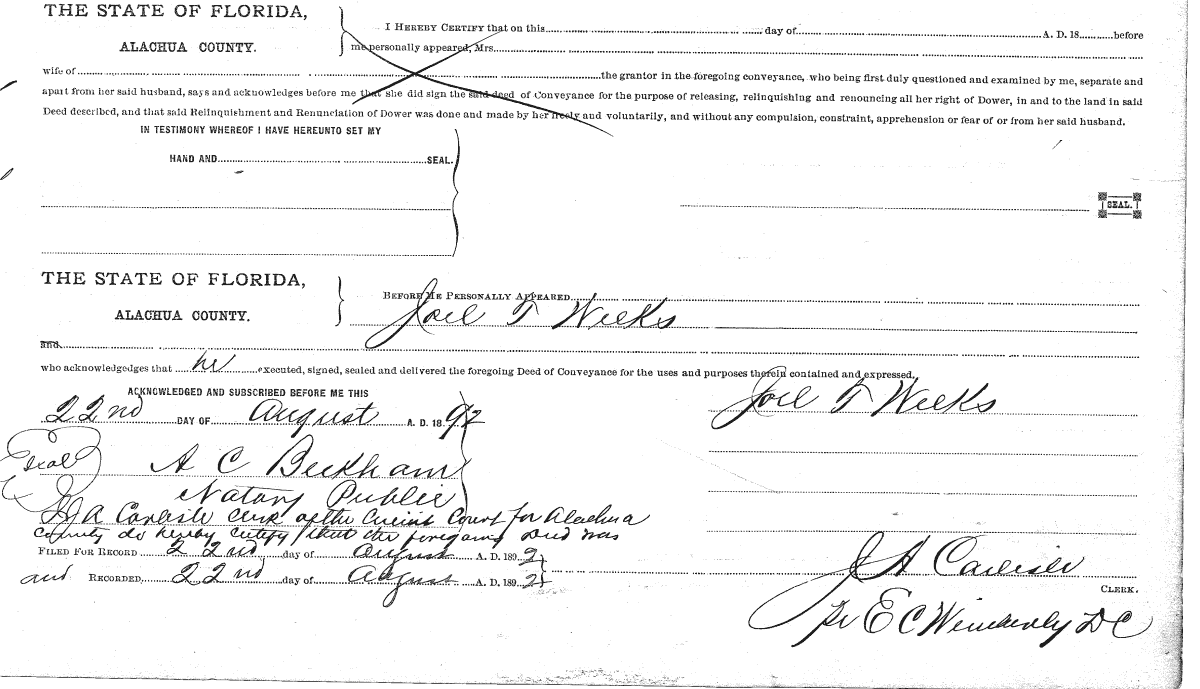 THE STATE OF FLORIDA,
ALACHUA COUNTY.
I HEREBY CERTIFY that on this day of A. D. 18 before
me personally appeared, Mrs.
wife of the grantor in the foregoing conveyance, who being first duly questioned and examined by me, separate and
apart from her said husband, says and acknowledges before me that she did sign the said deed of Conveyance for the purpose of releasing, relinquishing and renouncing all her right of Dower, in and to the land in said
Deed described, and that said Relinquishment and Renunciation of Dower was done and made by her freely and voluntarily, and without any compulsion, constraint, apprehension or fear of or from her said husband.
IN TESTIMONY WHEREOF I HAVE HEREUNTO SET MY
HAND AND SEAL.
SEAL.
THE STATE OF FLORIDA,
ALACHUA COUNTY.
BEFORE ME PERSONALLY APPEARED
Joel T Weeks
and
who acknowledges that he executed, signed, sealed and delivered the foregoing Deed of Conveyance for the uses and purposes therein contained and expressed,
ACKNOWLEDGED AND SUBSCRIBED BEFORE ME THIS
22nd DAY OF August A. D. 1892
Joel T Weeks
Seal
A C Beckham
Notary Public
I J A Carlisle Clerk of the Circuit Court for Alachua
County do hereby certify that the foregoing Deed was
FILED FOR RECORD 22nd day of August A. D. 1892
and RECORDED, 22nd day of August A. D. 1892
J A Carlisle
CLERK.
Pr E C Wimberly D C